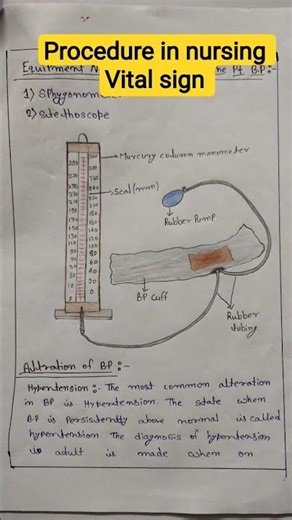 Procedure in nursing
Vital sign
Equipment
the Pt B.P:-
1) Sphygnom
2) Stethoscope
Mercury column manometer
Scal (mm)
Rubber Pump
BP Cuff
Rubber
tubing
300
0
Altration of BP :-
Hypertension :- The most common alteration
in BP is Hypertension. The state when
B.P is Persistently above normal is called
hypertension. The diagnosis of hypertension
in adult is made when on